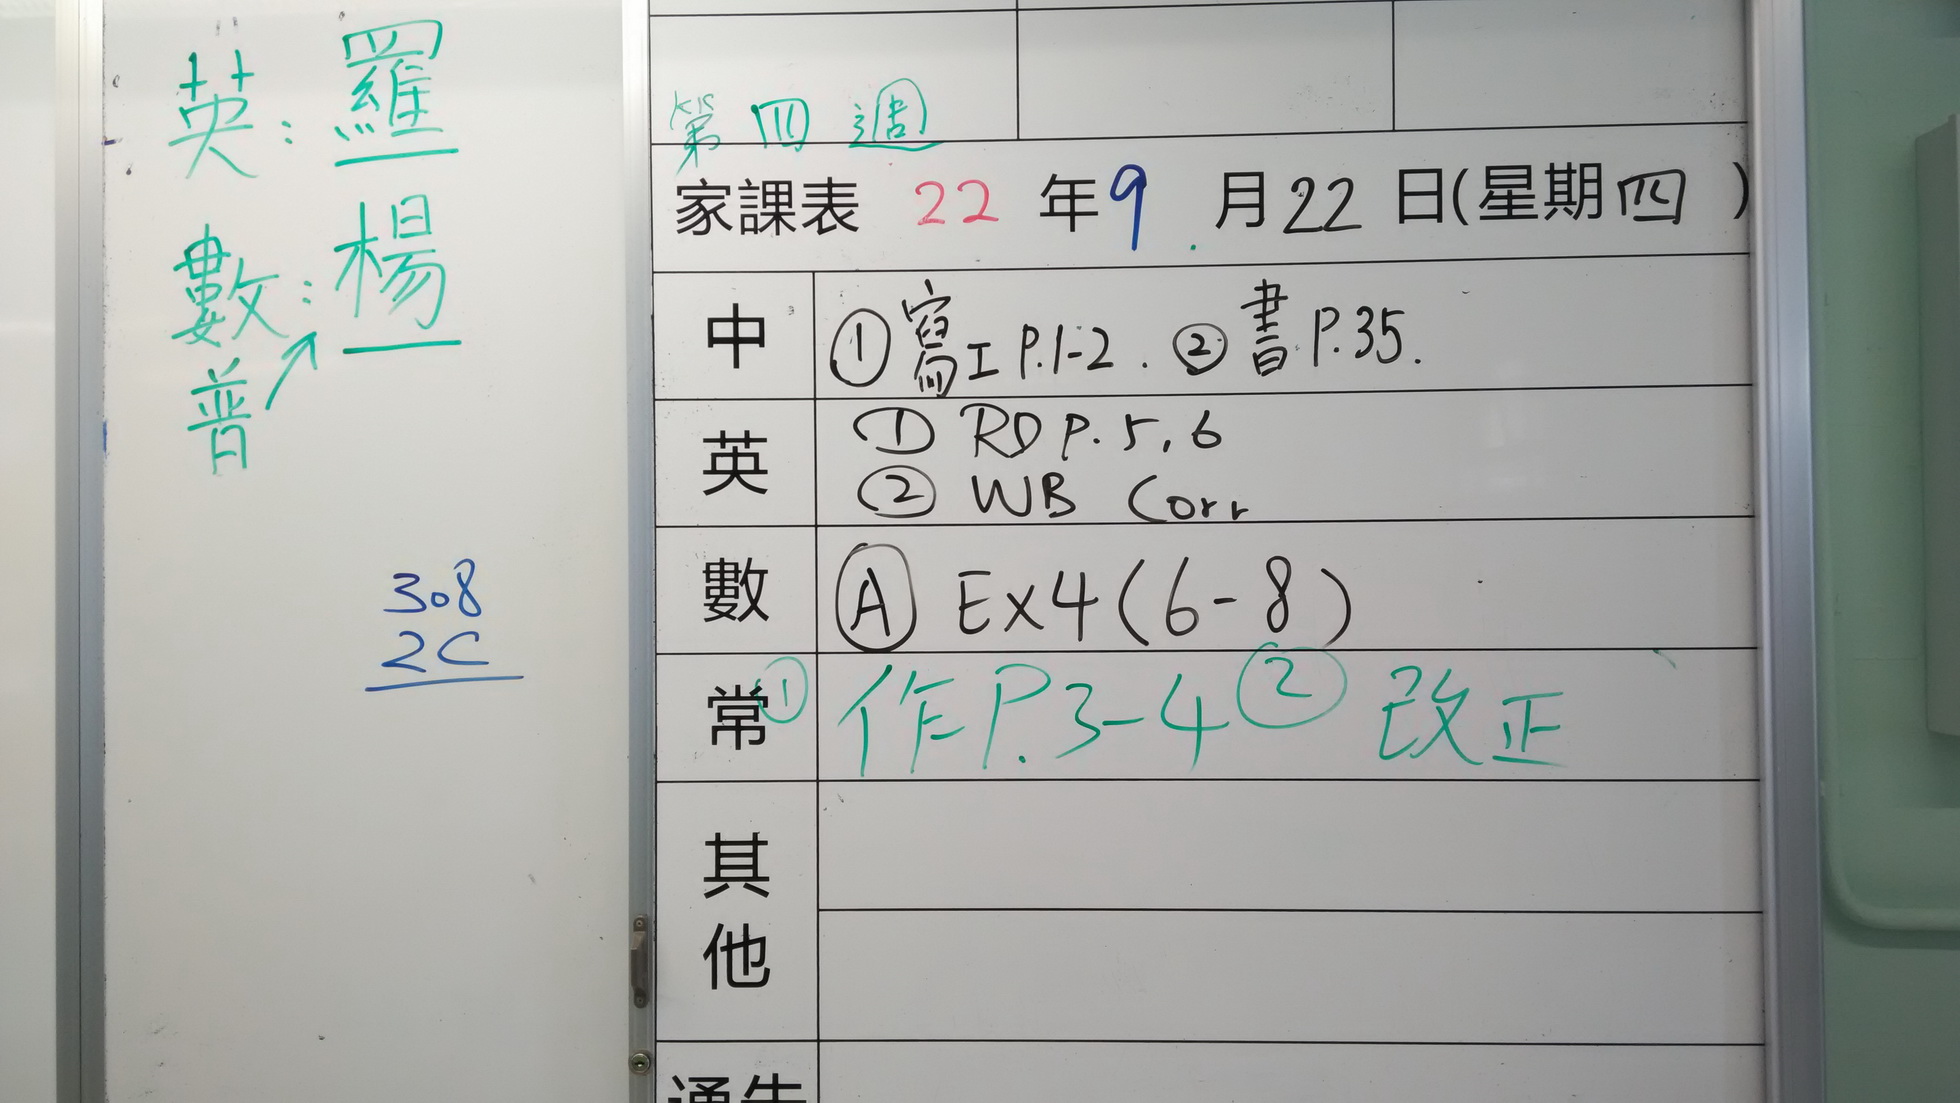 英：羅
數：楊
普
308
2C
第四週
家課表 22 年 9 月 22 日(星期四)
中 ①寫工P.1-2. ②書P.35.
英 ① RD P.5,6
② WB Corr
數 Ⓐ Ex4(6-8)
常 ①作P.3-4 ②改正
其他
通告